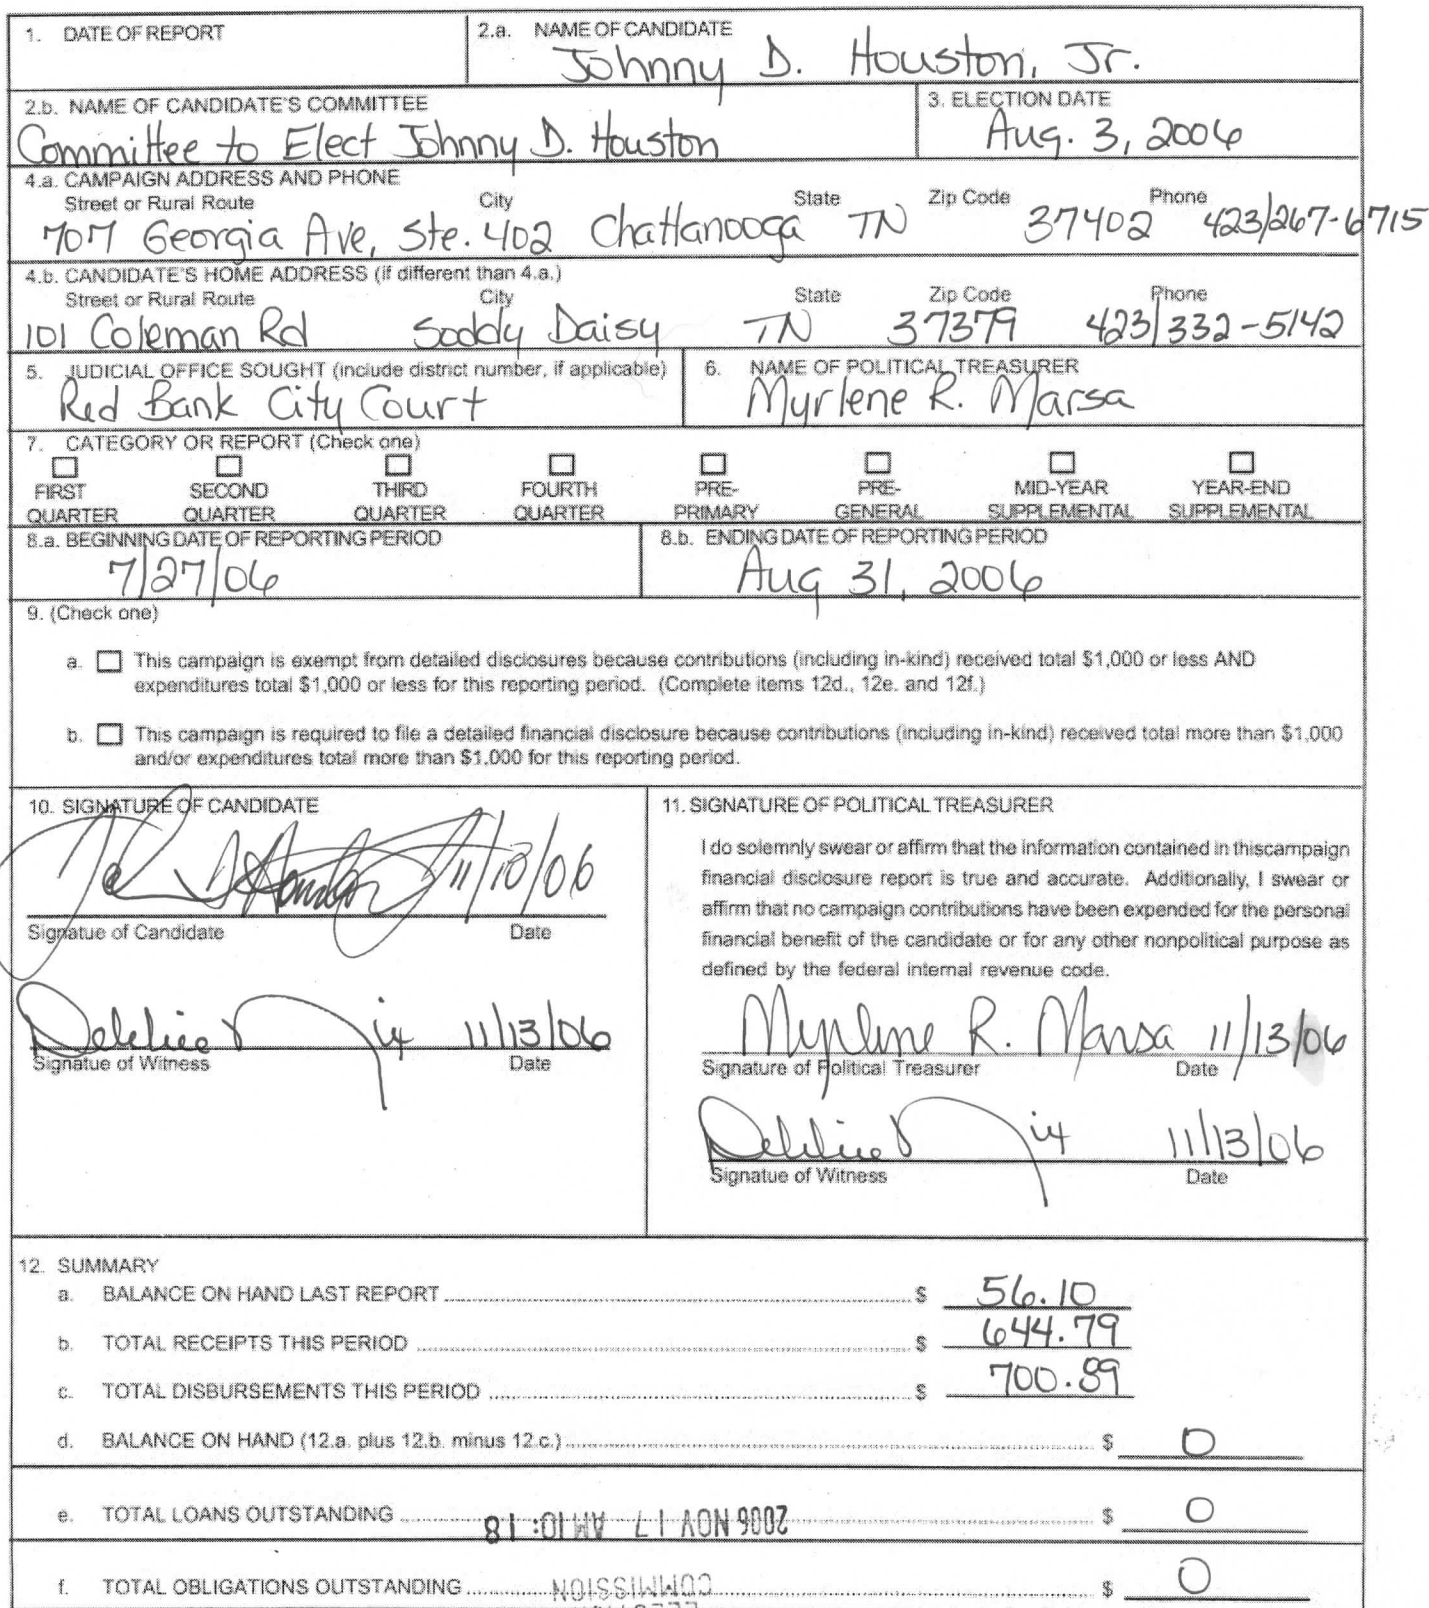 1. DATE OF REPORT
2.a. NAME OF CANDIDATE
Johnny D. Houston, Jr.
2.b. NAME OF CANDIDATE'S COMMITTEE
Committee to Elect Johnny D. Houston
3. ELECTION DATE
Aug. 3, 2006
4.a. CAMPAIGN ADDRESS AND PHONE
Street or Rural Route City State Zip Code Phone
707 Georgia Ave, Ste. 402 Chattanooga TN 37402 423/267-6715
4.b. CANDIDATE'S HOME ADDRESS (if different than 4.a.)
Street or Rural Route City State Zip Code Phone
101 Coleman Rd Soddy Daisy TN 37379 423/332-5142
5. JUDICIAL OFFICE SOUGHT (include district number, if applicable)
Red Bank City Court
6. NAME OF POLITICAL TREASURER
Myrlene R. Marsa
7. CATEGORY OR REPORT (Check one)
FIRST QUARTER
SECOND QUARTER
THIRD QUARTER
FOURTH QUARTER
PRE-PRIMARY
PRE-GENERAL
MID-YEAR SUPPLEMENTAL
YEAR-END SUPPLEMENTAL
8.a. BEGINNING DATE OF REPORTING PERIOD
7/27/06
8.b. ENDING DATE OF REPORTING PERIOD
Aug 31, 2006
9. (Check one)
a. This campaign is exempt from detailed disclosures because contributions (including in-kind) received total $1,000 or less AND
expenditures total $1,000 or less for this reporting period. (Complete items 12d., 12e. and 12f.)
b. This campaign is required to file a detailed financial disclosure because contributions (including in-kind) received total more than $1,000
and/or expenditures total more than $1,000 for this reporting period.
10. SIGNATURE OF CANDIDATE
11/13/06
Signatue of Candidate Date
Debbie Nix 11/13/06
Signatue of Witness Date
11. SIGNATURE OF POLITICAL TREASURER
I do solemnly swear or affirm that the information contained in thiscampaign
financial disclosure report is true and accurate. Additionally, I swear or
affirm that no campaign contributions have been expended for the personal
financial benefit of the candidate or for any other nonpolitical purpose as
defined by the federal internal revenue code.
Myrlene R. Marsa 11/13/06
Signature of Political Treasurer Date
Debbie Nix 11/13/06
Signatue of Witness Date
12. SUMMARY
a. BALANCE ON HAND LAST REPORT $ 56.10
b. TOTAL RECEIPTS THIS PERIOD $ 644.79
c. TOTAL DISBURSEMENTS THIS PERIOD $ 700.89
d. BALANCE ON HAND (12.a. plus 12.b. minus 12.c.) $ 0
e. TOTAL LOANS OUTSTANDING $ 0
2006 NOV 17 AM 10: 18
f. TOTAL OBLIGATIONS OUTSTANDING $ 0
COMMISSION